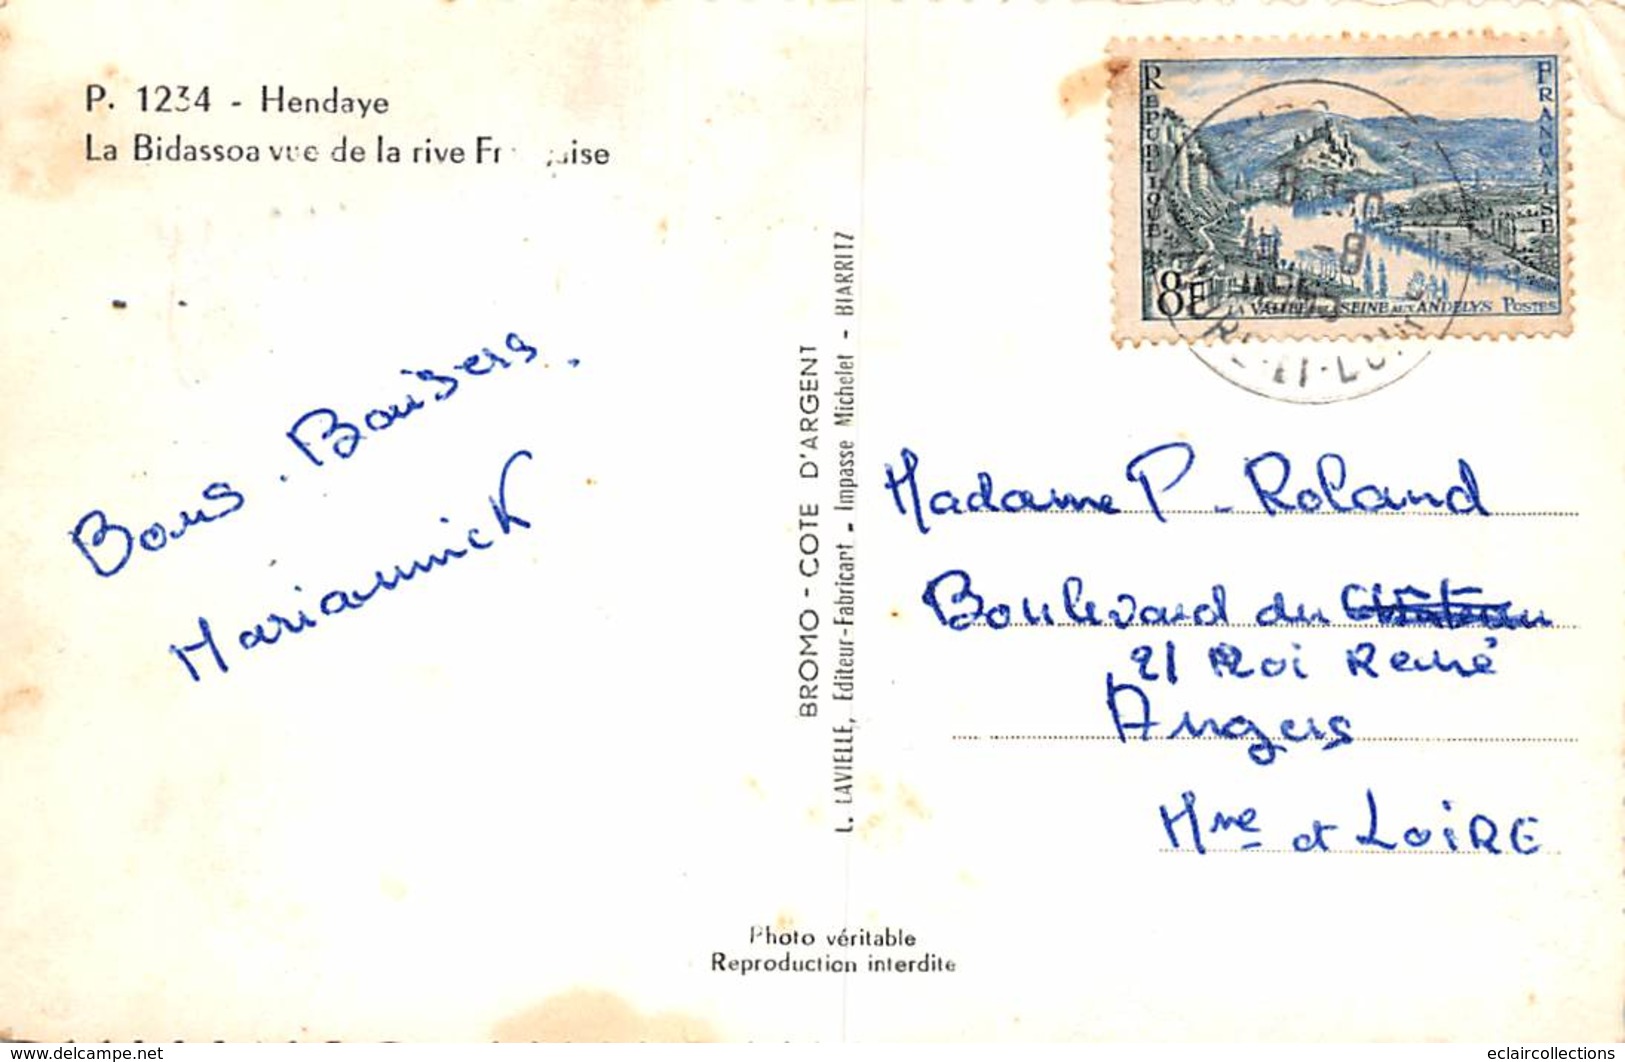 P. 1234 - Hendaye
La Bidassoa vue de la rive
Bons Baisers.
Mariannick
BROMO - COTE D'ARGENT
L. LAVIELLE, Editeur-Fabricant - Impasse Michelet - BIARRITZ
Photo véritable
Reproduction interdite
REPUBLIQUE
FRANCAISE
8F
LA VALLEE DE LA SEINE AUX ANDELYS POSTES
Madame P. Roland
Boulevard du
21 Roi René
Angers
Mne et LOIRE
www.delcampe.net
eclaircollections